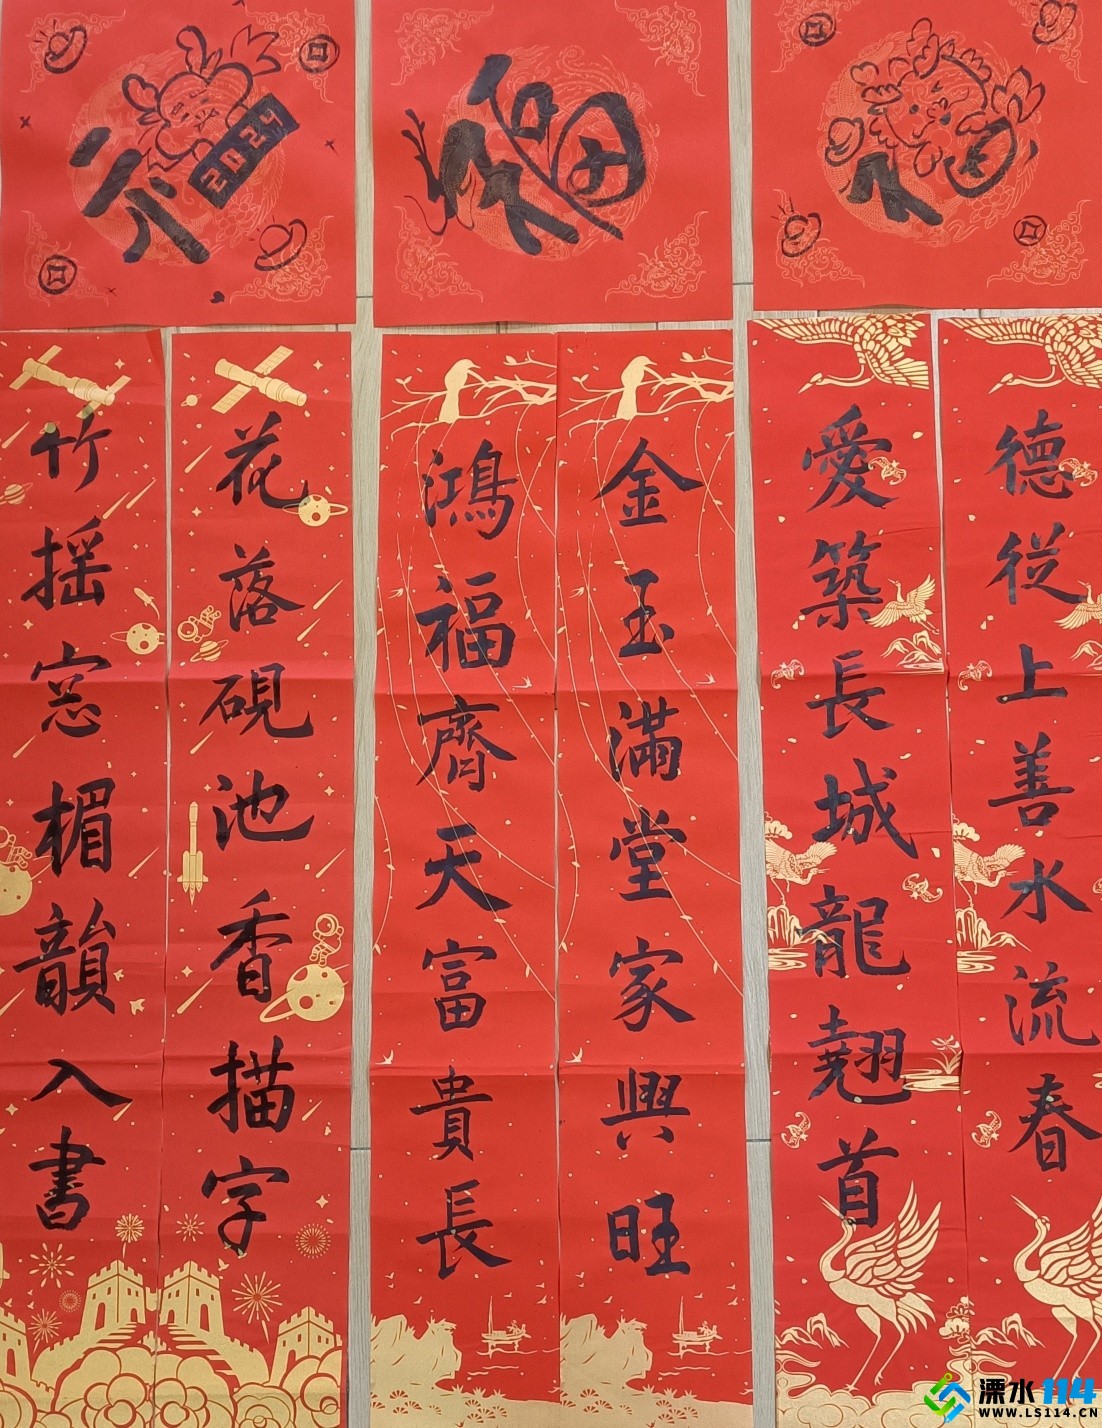 福
德從上善水流春
愛築長城龍翹首
金玉滿堂家興旺
鴻福齊天富貴長
花落硯池香描字
竹摇窓楣韻入書
溧水114
WWW.LS114.CN